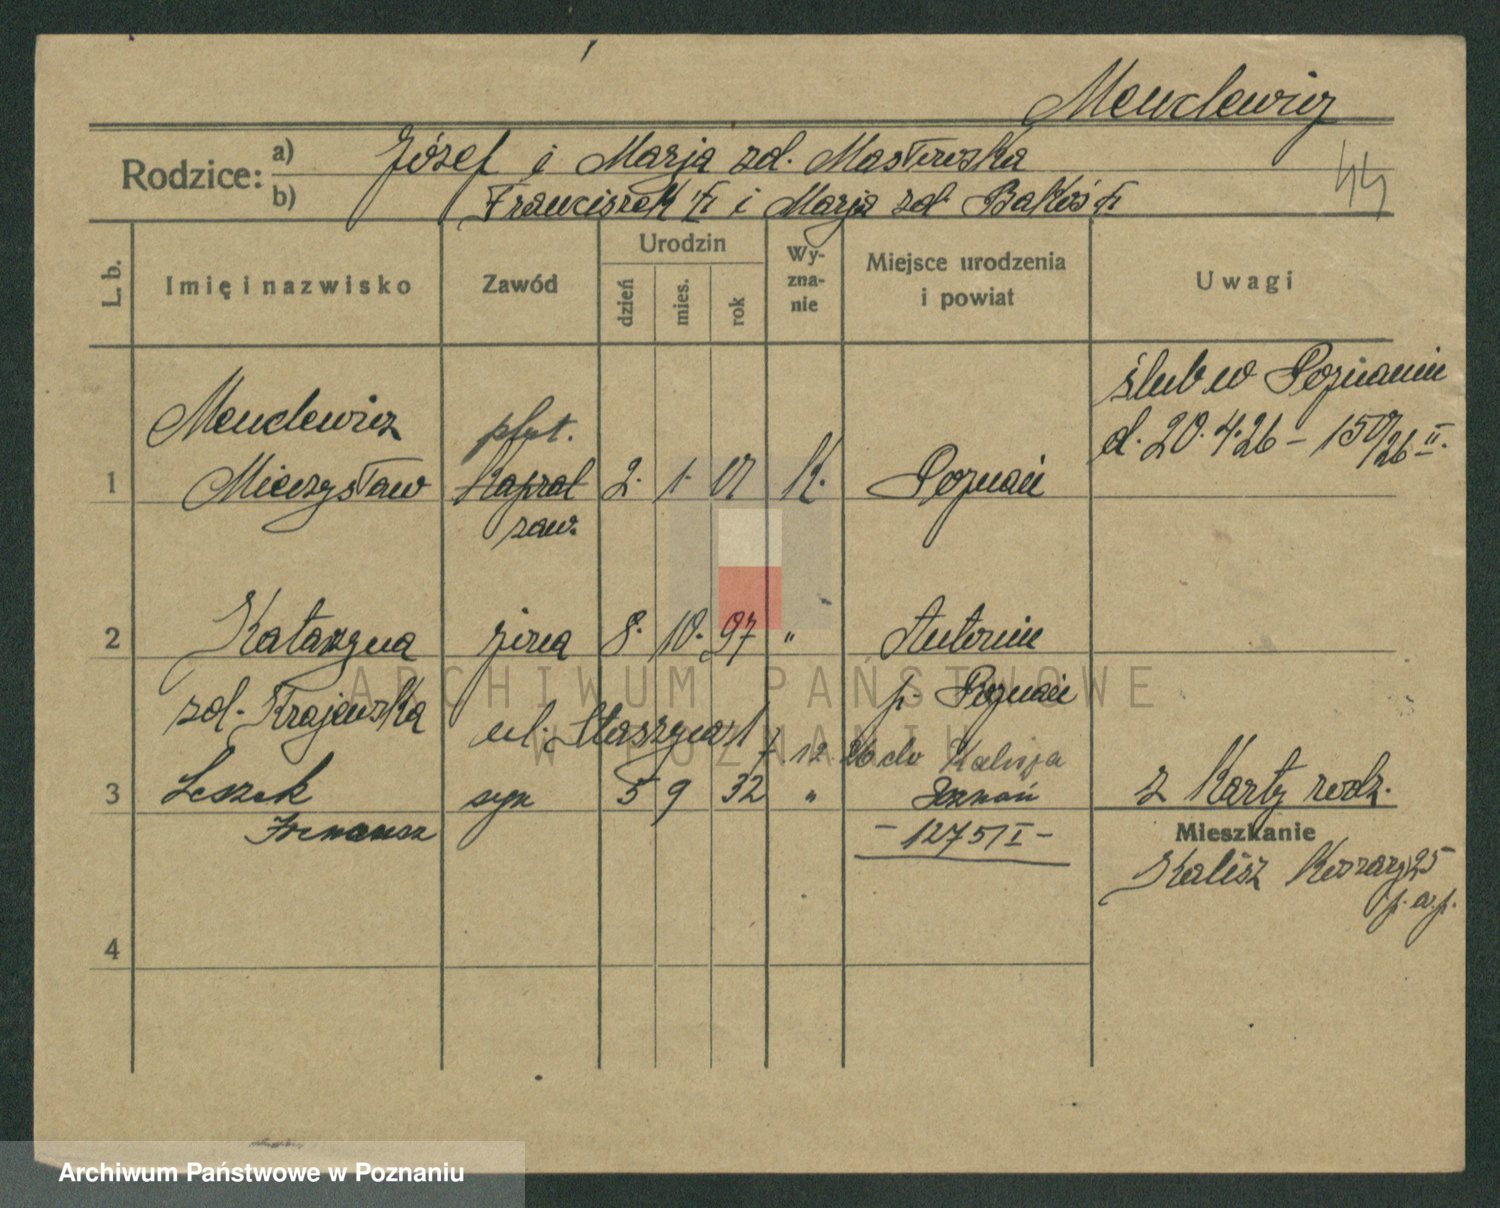 Mendlewicz
Rodzice:
a) Józef i Marja zd. Masłowska
b) Franciszek i Marja zd. Bakoś
44
L. b.
Imię i nazwisko
Zawód
Urodzin
dzień
mies.
rok
Wy-
zna-
nie
Miejsce urodzenia
i powiat
Uwagi
ślub w Poznaniu
d. 20.4.26 - II.
Mendlewicz
plut.
1 Mieczysław Kapral 2. 1. 01 K. Poznań
zaw.
2 Katarzyna żona 8. 10. 97 " Antonin
zd. Krajewska p. Poznań
ul. Staszyca
7 12 26 do Kalisza
3 Leszek syn 5 9 32 " Poznań z Karty rodz.
Ireneusz
- 1275/I -
Mieszkanie
Kalisz 25
p. a. p.
4
ARCHIWUM PAŃSTWOWE
W POZNANIU
Archiwum Państwowe w Poznaniu